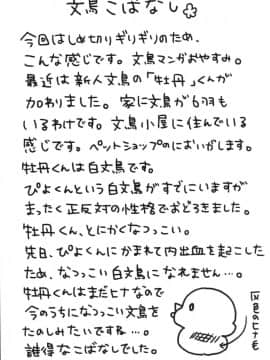 文鳥こばなし
今回はしめ切りギリギリのため、
こんな感じです。文鳥マンガおやすみ。
最近は新入文鳥の「牡丹」くんが
加わりました。家に文鳥が6羽も
いるわけです。文鳥小屋に住んでいる
感じです。ペットショップのにおいがします。
牡丹くんは白文鳥です。
ぴよくんという白文鳥がすでにいますが
まったく正反対の性格でおどろきました。
牡丹くん、とにかくなつっこい。
先日、ぴよくんにかまれて内出血を起こした
ため、なつっこい白文鳥になれません…。
牡丹くんはまだヒナなので
今のうちになつっこい文鳥を
たのしみたいですね…。
誰得なこばなしでした。